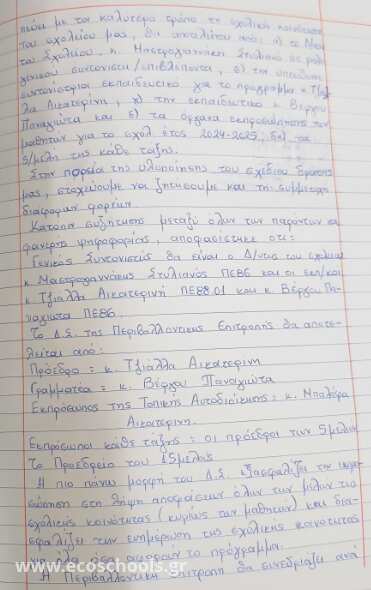 με τον καλύτερο τρόπο τη σχολική κοινότητα
του σχολείου μας, θα αποτελείται από: α) το Δ/ντή
του Σχολείου, κ. Μαστρογιαννάκη Στυλιανό ως
συντονιστή/επιβλέποντα, β) την υπεύθυνη
συντονίστρια εκπαιδευτικό για το πρόγραμμα κ. Τζιάλλα
Αικατερίνη, γ) την εκπαιδευτικό κ. Βέρχου
Παναγιώτα και δ) τα όργανα εκπροσώπησης των
μαθητών για το σχολ. έτος 2024-2025, δηλ. τα
5/μελή της κάθε τάξης.
Στην πορεία της υλοποίησης του σχεδίου δράσης
μας, στοχεύουμε να ζητήσουμε και τη συμμετοχή
διαφόρων φορέων.
Κατόπιν συζήτησης μεταξύ όλων των παρόντων και
φανερής ψηφοφορίας, αποφασίστηκε ότι:
Γενικός Συντονιστής θα είναι ο Δ/ντής του σχολείου
κ. Μαστρογιαννάκης Στυλιανός ΠΕ86 και οι εκπ/κοί
κ. Τζιάλλα Αικατερίνη ΠΕ88.01 και κ. Βέρχου Πα-
ναγιώτα ΠΕ86.
Το Δ.Σ. της Περιβαλλοντικής Επιτροπής θα αποτε-
λείται από:
Πρόεδρο: κ. Τζιάλλα Αικατερίνη
Γραμματέα: κ. Βέρχου Παναγιώτα
Εκπρόσωπος της Τοπικής Αυτοδιοίκησης: κ.
Αικατερίνη.
Εκπρόσωποι κάθε τάξης: οι πρόεδροι των 5μελών
Το Προεδρείο του 15μελούς
Η πιο πάνω μορφή του Δ.Σ. εξασφαλίζει την
στη λήψη αποφάσεων όλων των μελών της
σχολικής κοινότητας (κυρίως των μαθητών) και δια-
σφαλίζει την ενημέρωση της σχολικής κοινότητας
για όλα όσα αφορούν το πρόγραμμα.
Η Περιβαλλοντική Επιτροπή θα συνεδριάζει ανά
www.ecoschools.gr